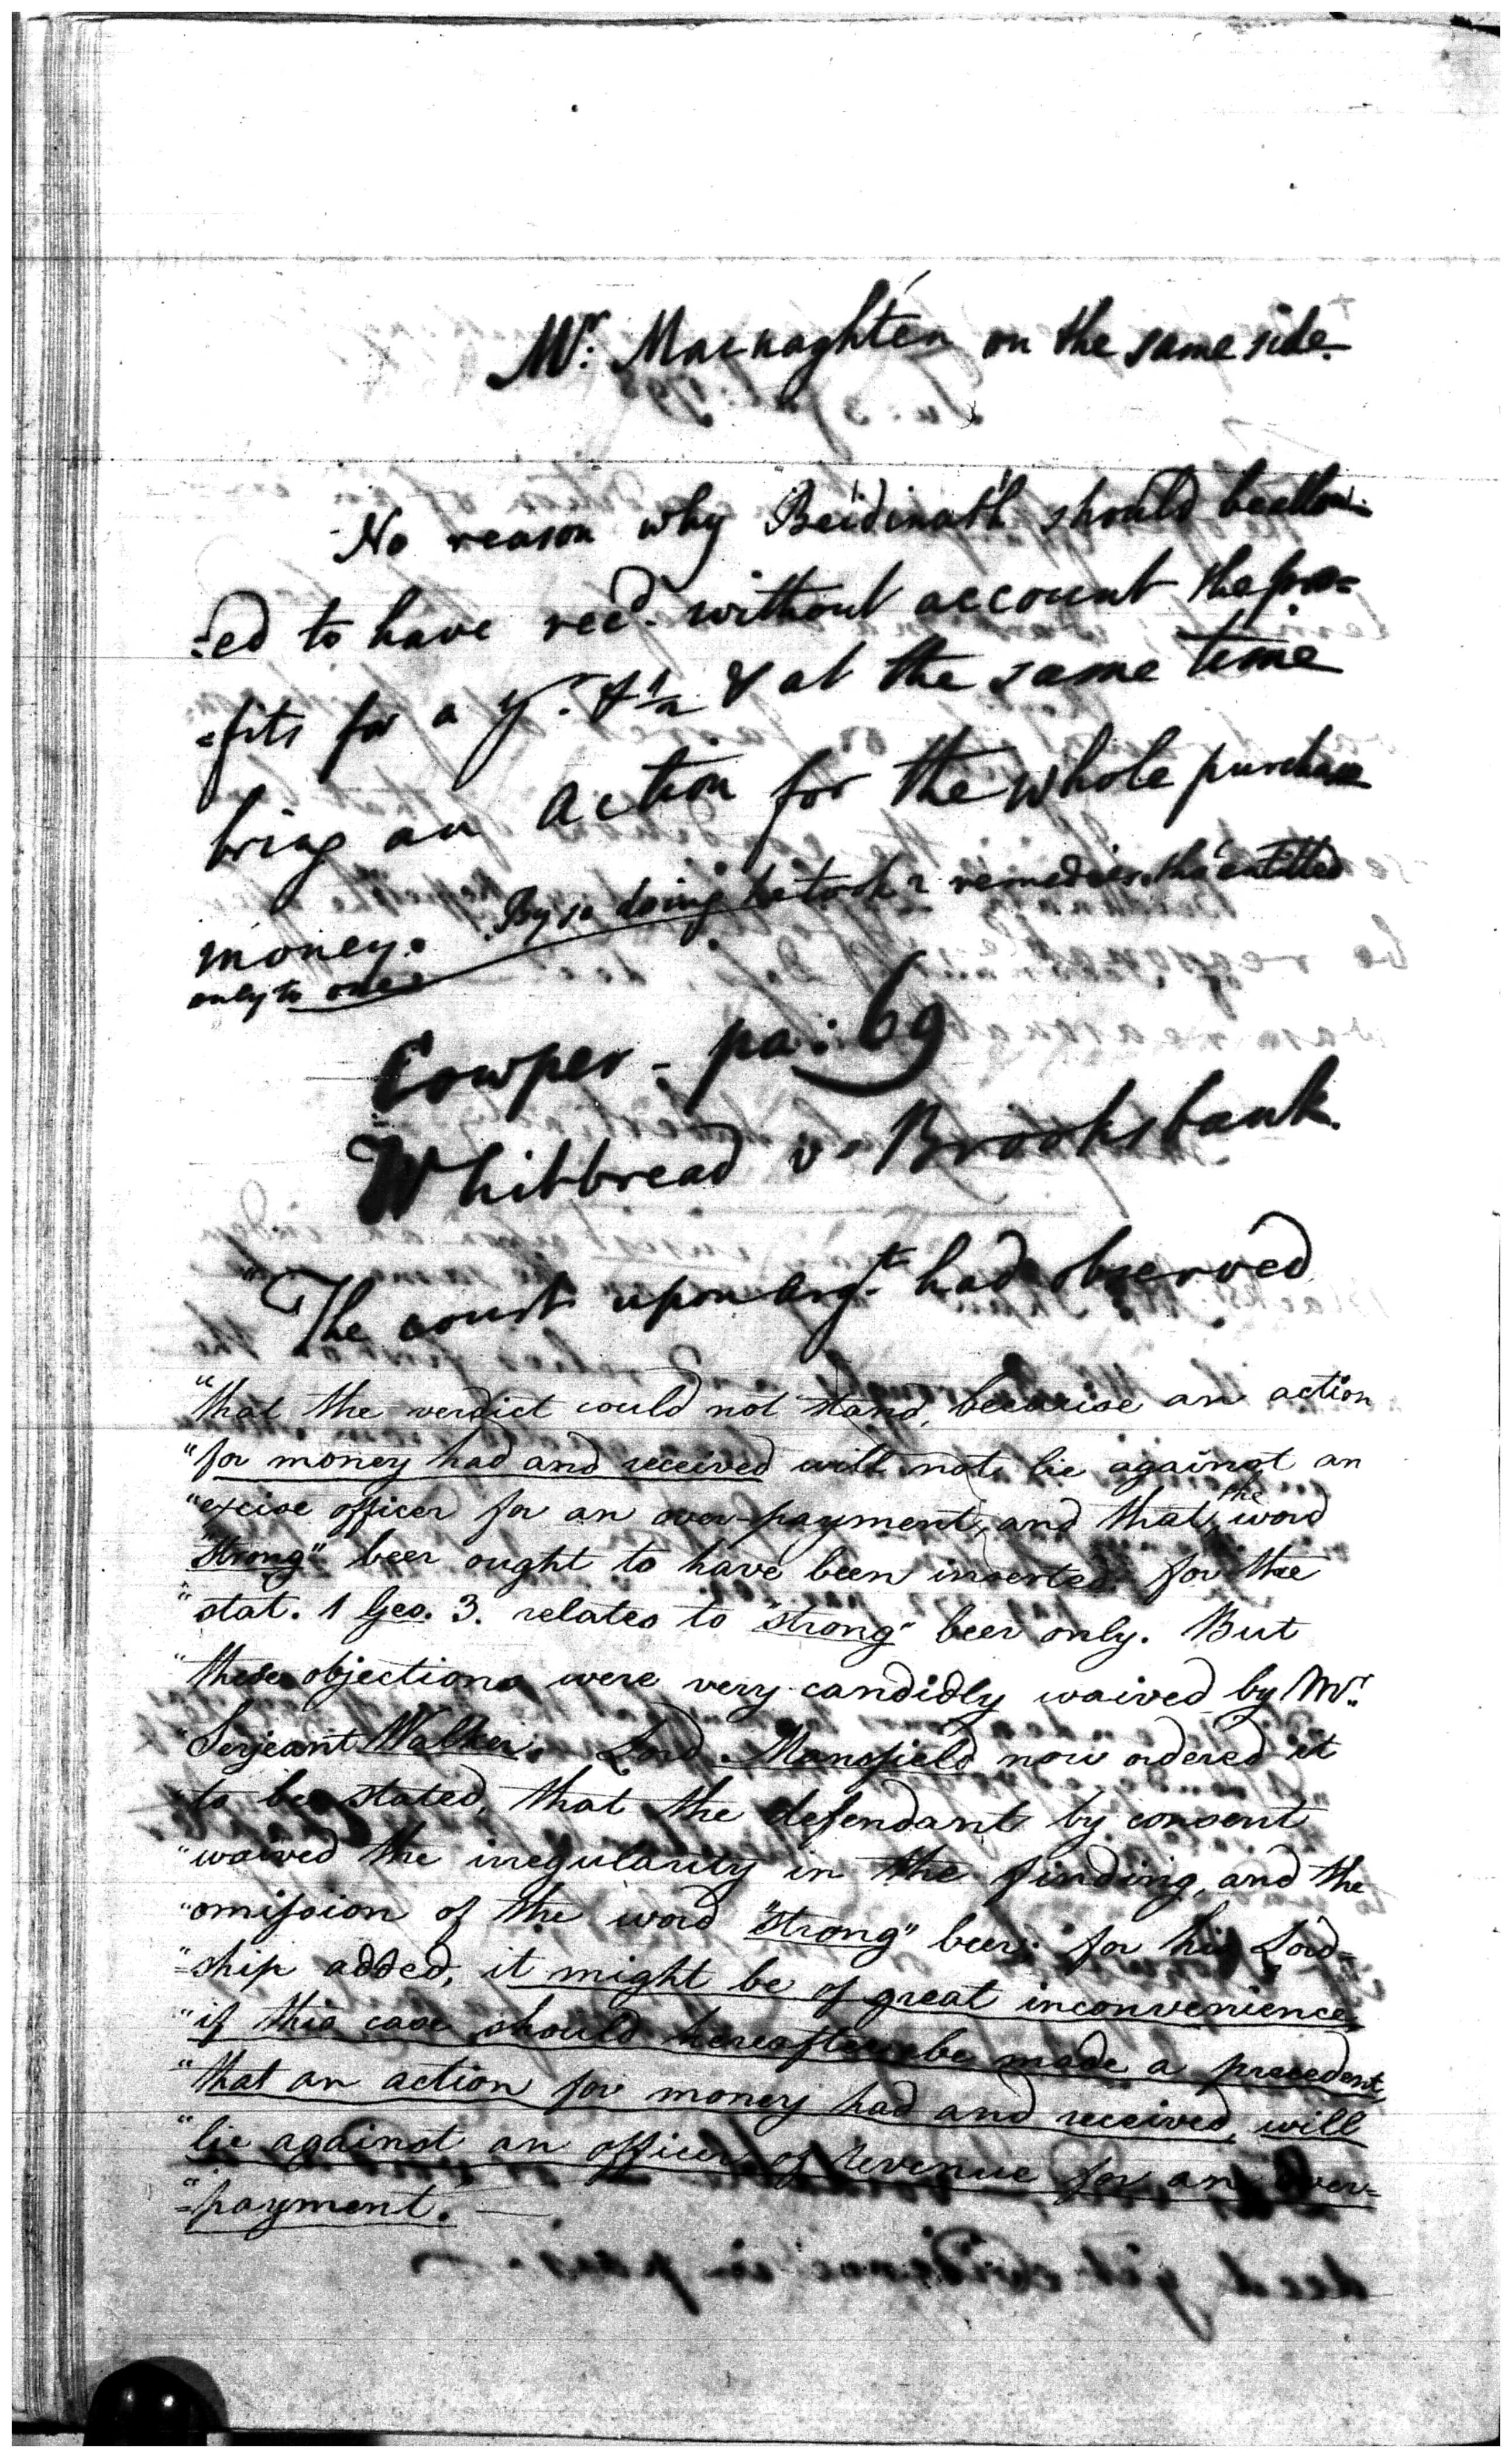 Mr. Macnaghten on the same side.
No reason why Beidinath should beallow-
-ed to have recd. without account the pro=
=fits for a yr. & 1/2 & at the same time
bring an action for the whole purchase
money. By so doing he took 2 remedies, tho' entitled
only to one
Cowper - pa: 69
Whitbread v. Brooksbank.
"The court upon argt. had observed
"that the verdict could not stand, because an action
"for money had and received will not lie against an
"excise officer for an over-payment, and that the word
"strong" beer ought to have been inserted for the
"stat. 1 Geo. 3. relates to "strong" beer only. But
"these objections were very candidly waived by Mr.
"Serjeant Walker. Lord Mansfield now ordered it
"to be stated, that the defendant by consent
"waived the irregularity in the finding, and the
"omission of the word "strong" beer; for his Lord=
"=ship added, it might be of great inconvenience,
"if this case should hereafter be made a precedent,
"that an action for money had and received, will
"lie against an officer of revenue for an over=
"=payment.